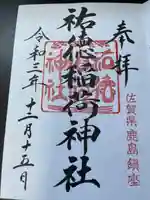 奉拝
佐賀県鹿島鎮座
祐徳稲荷神社
令和三年 十二月十五日